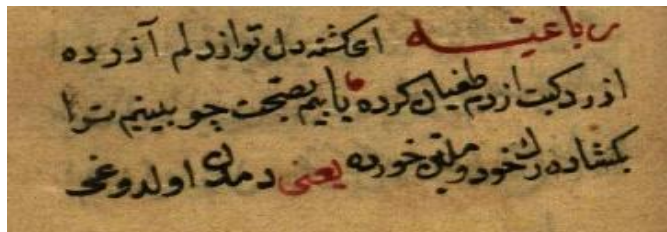 رباعیه ای کشته دل تو از دلم آذرده
از درد کبت ازدیم طغیان کرده یابیم بصحت چو ببینیم ترا
بکشاده رک خود و ملین خورده یعنی دملدن اولدوغی